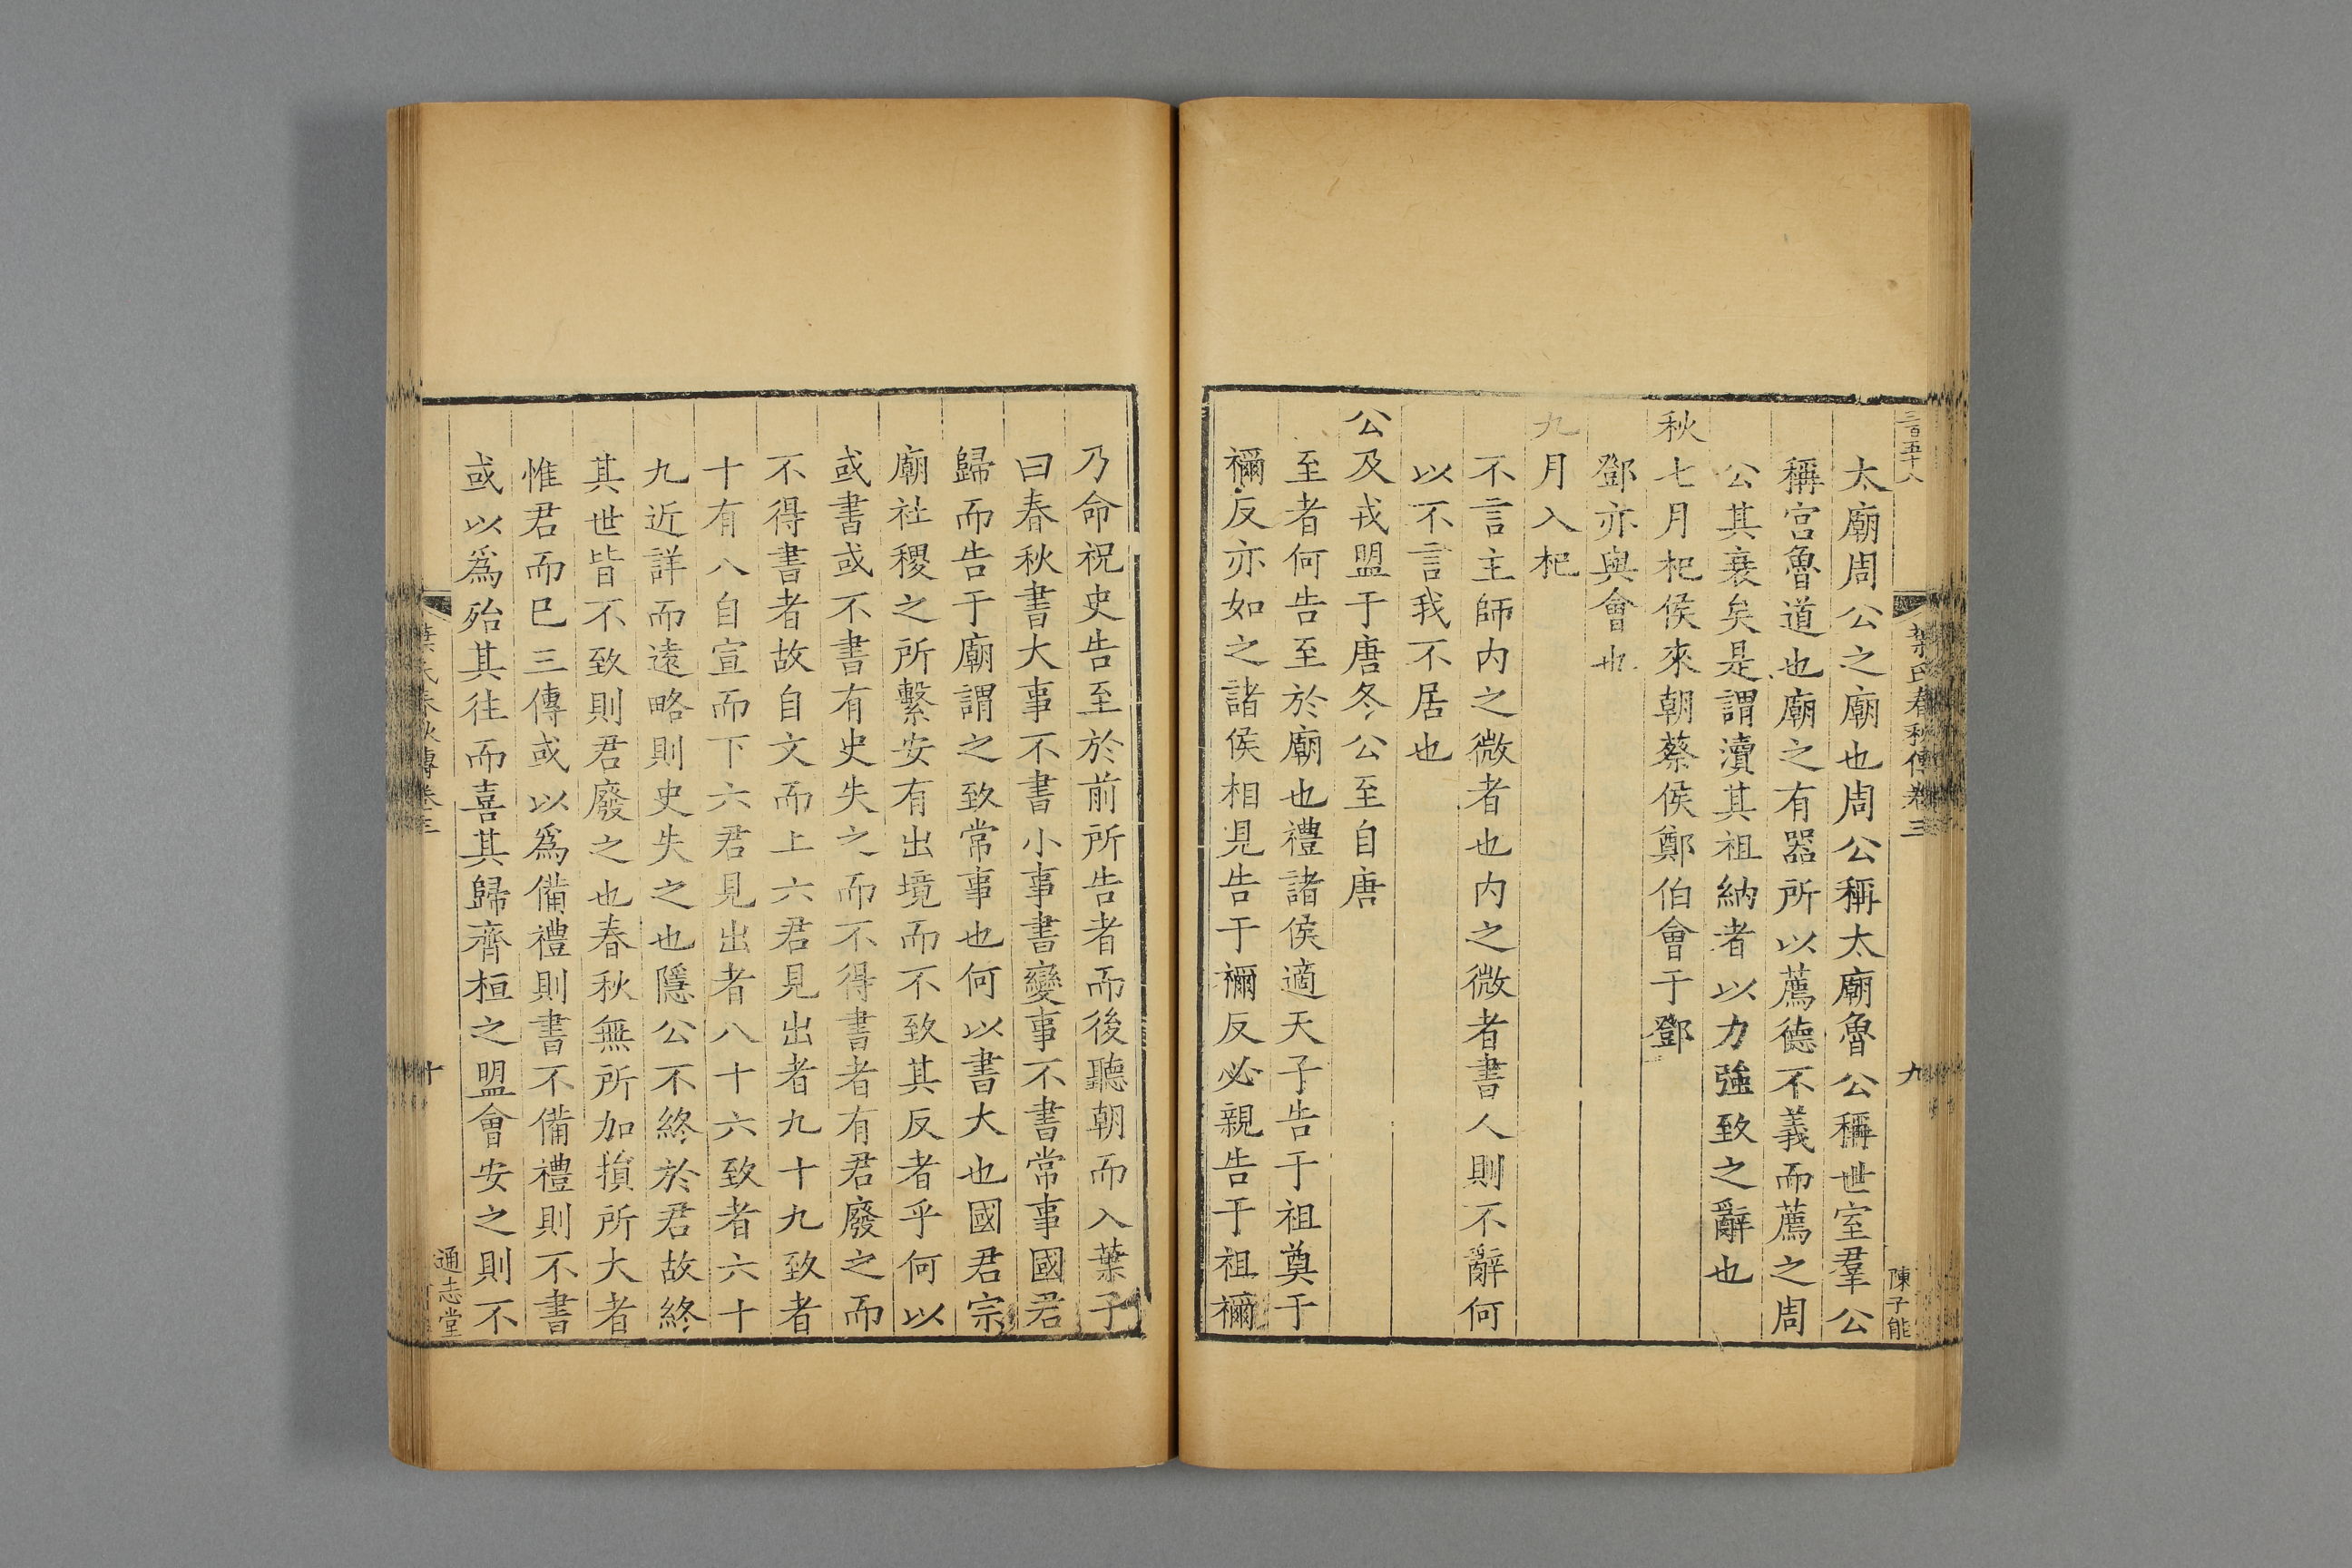 三百五十八
葉氏春秋傳卷三
九
陳子能
太廟周公之廟也周公稱太廟魯公稱世室羣公
稱宮魯道也廟之有器所以薦德不義而薦之周
公其衰矣是謂瀆其祖納者以力強致之辭也
秋七月杞侯來朝蔡侯鄭伯會于鄧
鄧亦與會也
九月入杞
不言主師内之微者也内之微者書人則不辭何
以不言我不居也
公及戎盟于唐冬公至自唐
至者何告至於廟也禮諸侯適天子告于祖奠于
禰反亦如之諸侯相見告于禰反必親告于祖禰
乃命祝史告至於前所告者而後聽朝而入葉子
曰春秋書大事不書小事書變事不書常事國君
歸而告于廟謂之致常事也何以書大也國君宗
廟社稷之所繫安有出境而不致其反者乎何以
或書或不書有史失之而不得書者有君廢之而
不得書者故自文而上六君見出者九十九致者
十有八自宣而下六君見出者八十六致者六十
九近詳而遠略則史失之也隱公不終於君故終
其世皆不致則君廢之也春秋無所加損所大者
惟君而已三傳或以爲備禮則書不備禮則不書
或以爲殆其往而喜其歸齊桓之盟會安之則不
葉氏春秋傳卷三
十
通志堂